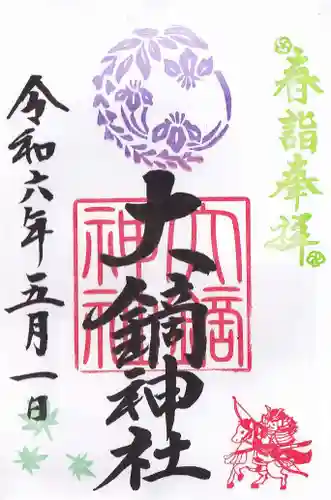 春詣奉拝
大鏑神社
大鏑
神社
令和六年五月一日